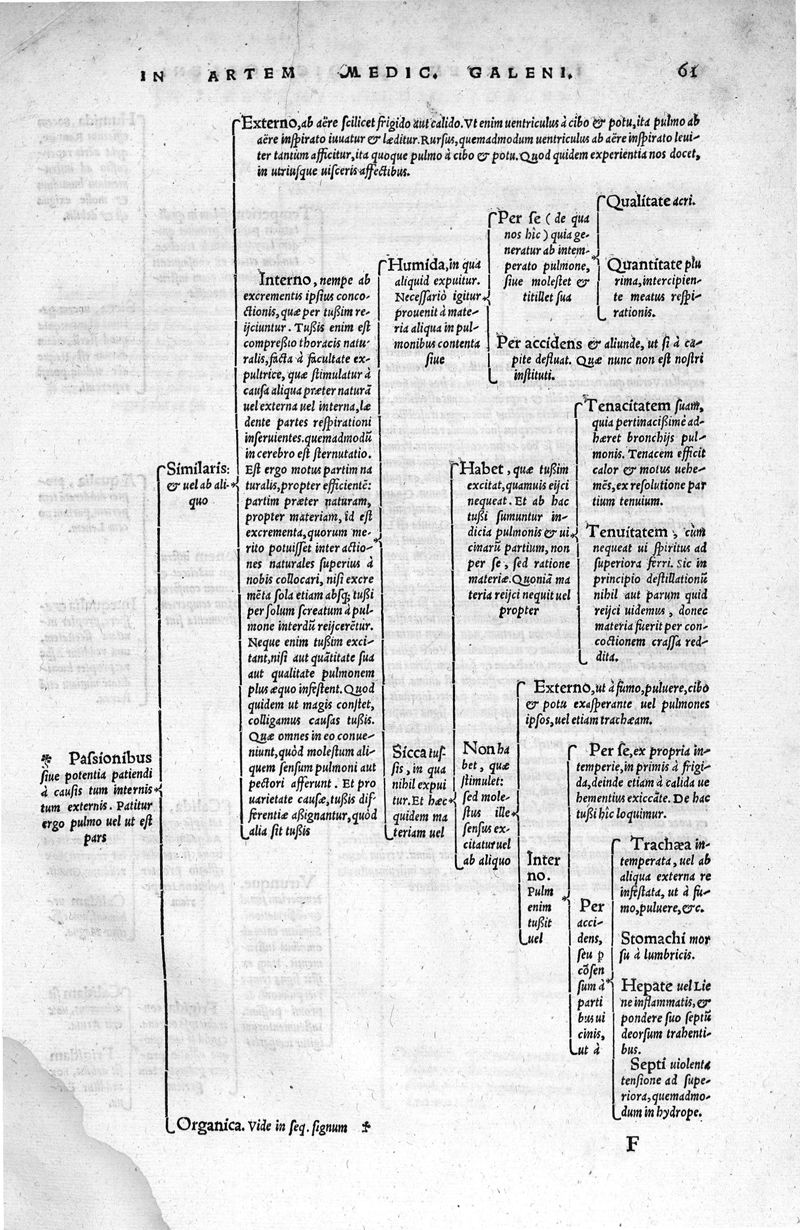 IN ARTEM MEDIC. GALENI. 61
Externo, ab aëre scilicet frigido aut calido. Vt enim uentriculus à cibo & potu, ita pulmo ab
aëre inspirato iuuatur & læditur. Rursus, quemadmodum uentriculus ab aëre inspirato leui-
ter tantum afficitur, ita quoque pulmo à cibo & potu. Quod quidem experientia nos docet,
in utriusque uisceris affectibus.
✽ Passionibus
siue potentia patiendi
à causis tum internis
tum externis. Patitur
ergo pulmo uel ut est
pars
Similaris:
& uel ab ali-
quo
Interno, nempe ab
excrementis ipsius conco-
ctionis, quæ per tußim re-
ijciuntur. Tußis enim est
compreßio thoracis natu-
ralis, facta à facultate ex-
pultrice, quæ stimulatur à
causa aliqua præter naturã
uel externa uel interna, læ
dente partes respirationi
inseruientes. quemadmodũ
in cerebro est sternutatio.
Est ergo motus partim na
turalis, propter efficientẽ:
partim præter naturam,
propter materiam, id est
excrementa, quorum me-
rito potuisset inter actio-
nes naturales superius à
nobis collocari, nisi excre
mẽta sola etiam absq; tußi
per solum screatum à pul-
mone interdũ reijcerẽtur.
Neque enim tußim exci-
tant, nisi aut quãtitate sua
aut qualitate pulmonem
plus æquo infestent. Quod
quidem ut magis constet,
colligamus causas tußis.
Quæ omnes in eo conue-
niunt, quòd molestum ali-
quem sensum pulmoni aut
pectori afferunt. Et pro
uarietate causæ, tußis dif-
ferentiæ aßignantur, quòd
alia sit tußis
Humida, in qua
aliquid expuitur.
Necessariò igitur
prouenit à mate-
ria aliqua in pul-
monibus contenta
siue
Per se (de qua
nos hîc) quia ge-
neratur ab intem-
perato pulmone,
siue molestet &
titillet sua
Qualitate acri.
Quantitate plu
rima, intercipien-
te meatus respi-
rationis.
Per accidens & aliunde, ut si à ca-
pite defluat. Quæ nunc non est nostri
instituti.
Sicca tus-
sis, in qua
nihil expui
tur. Et hæc
quidem ma
teriam uel
Habet, quæ tußim
excitat, quamuis eijci
nequeat. Et ab hac
tußi sumuntur in-
dicia pulmonis & ui
cinarũ partium, non
per se, sed ratione
materiæ. Quoniã ma
teria reijci nequit uel
propter
Tenacitatem suam,
quia pertinacißimè ad-
hæret bronchijs pul-
monis. Tenacem efficit
calor & motus uehe-
mẽs, ex resolutione par
tium tenuium.
Tenuitatem, cùm
nequeat ui spiritus ad
superiora ferri. Sic in
principio destillationũ
nihil aut parum quid
reijci uidemus, donec
materia fuerit per con-
coctionem crassa red-
dita.
Non ha
bet, quæ
stimulet:
sed mole-
stus ille
sensus ex-
citatur uel
ab aliquo
Externo, ut à fumo, puluere, cibo
& potu exasperante uel pulmones
ipsos, uel etiam trachæam.
Inter
no.
Pulm
enim
tußit
uel
Per se, ex propria in-
temperie, in primis à frigi-
da, deinde etiam à calida ue
hementius exiccãte. De hac
tußi hîc loquimur.
Per
acci-
dens,
seu p
cõsen
sum à
parti
bus ui
cinis,
ut à
Trachæa in-
temperata, uel ab
aliqua externa re
infestata, ut à fu-
mo, puluere, &c.
Stomachi mor
su à lumbricis.
Hepate uel Lie
ne inflammatis, &
pondere suo septũ
deorsum trahenti-
bus.
Septi uiolenta
tensione ad supe-
riora, quemadmo-
dum in hydrope.
Organica. Vide in seq. signum ✢
F